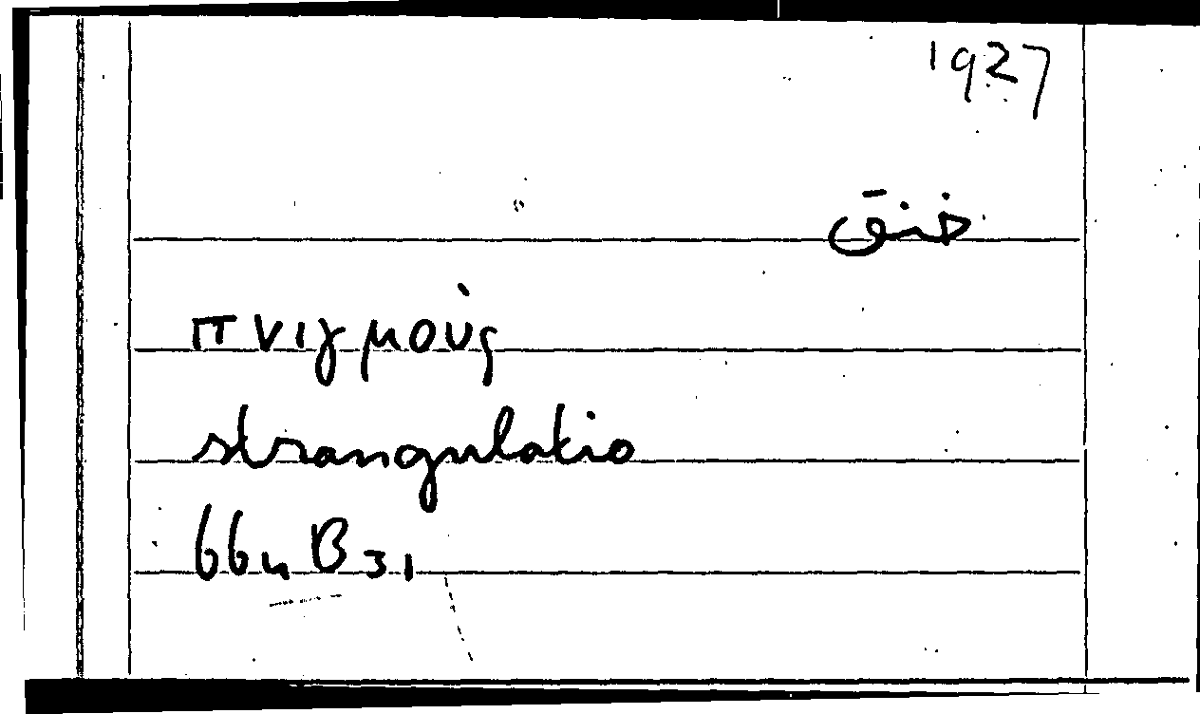 1927
خنق
πνιγμοὺς
strangulatio
66u B 31